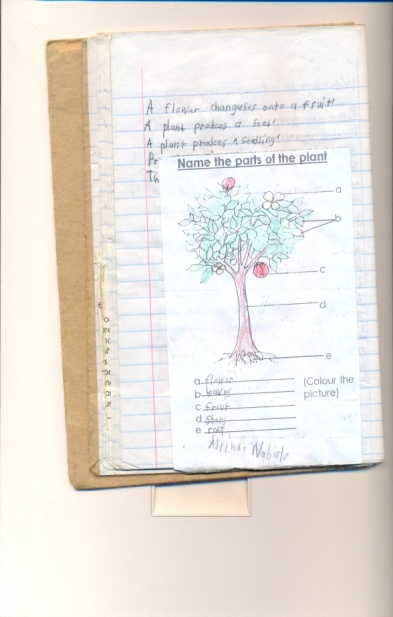 A flower changeses onto a fruit
A plant produces a seed
A plant produces a seedling
Pr
Th
Name the parts of the plant
a
b
c
d
e
a flower
b leaves
c fruit
d stem
e root
(Colour the
picture)